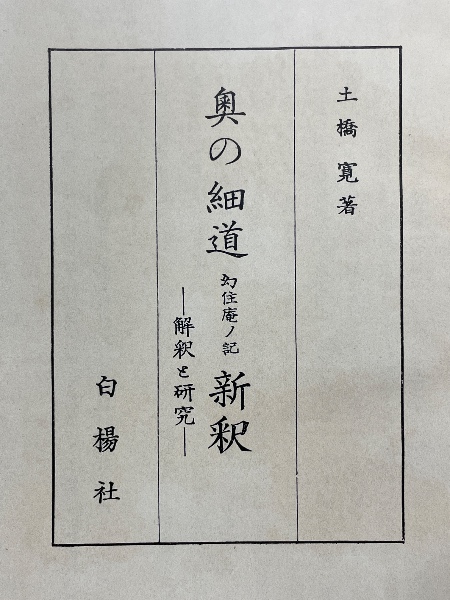 土橋寛著
奥の細道 幻住庵ノ記 新釈
―解釈と研究―
白楊社